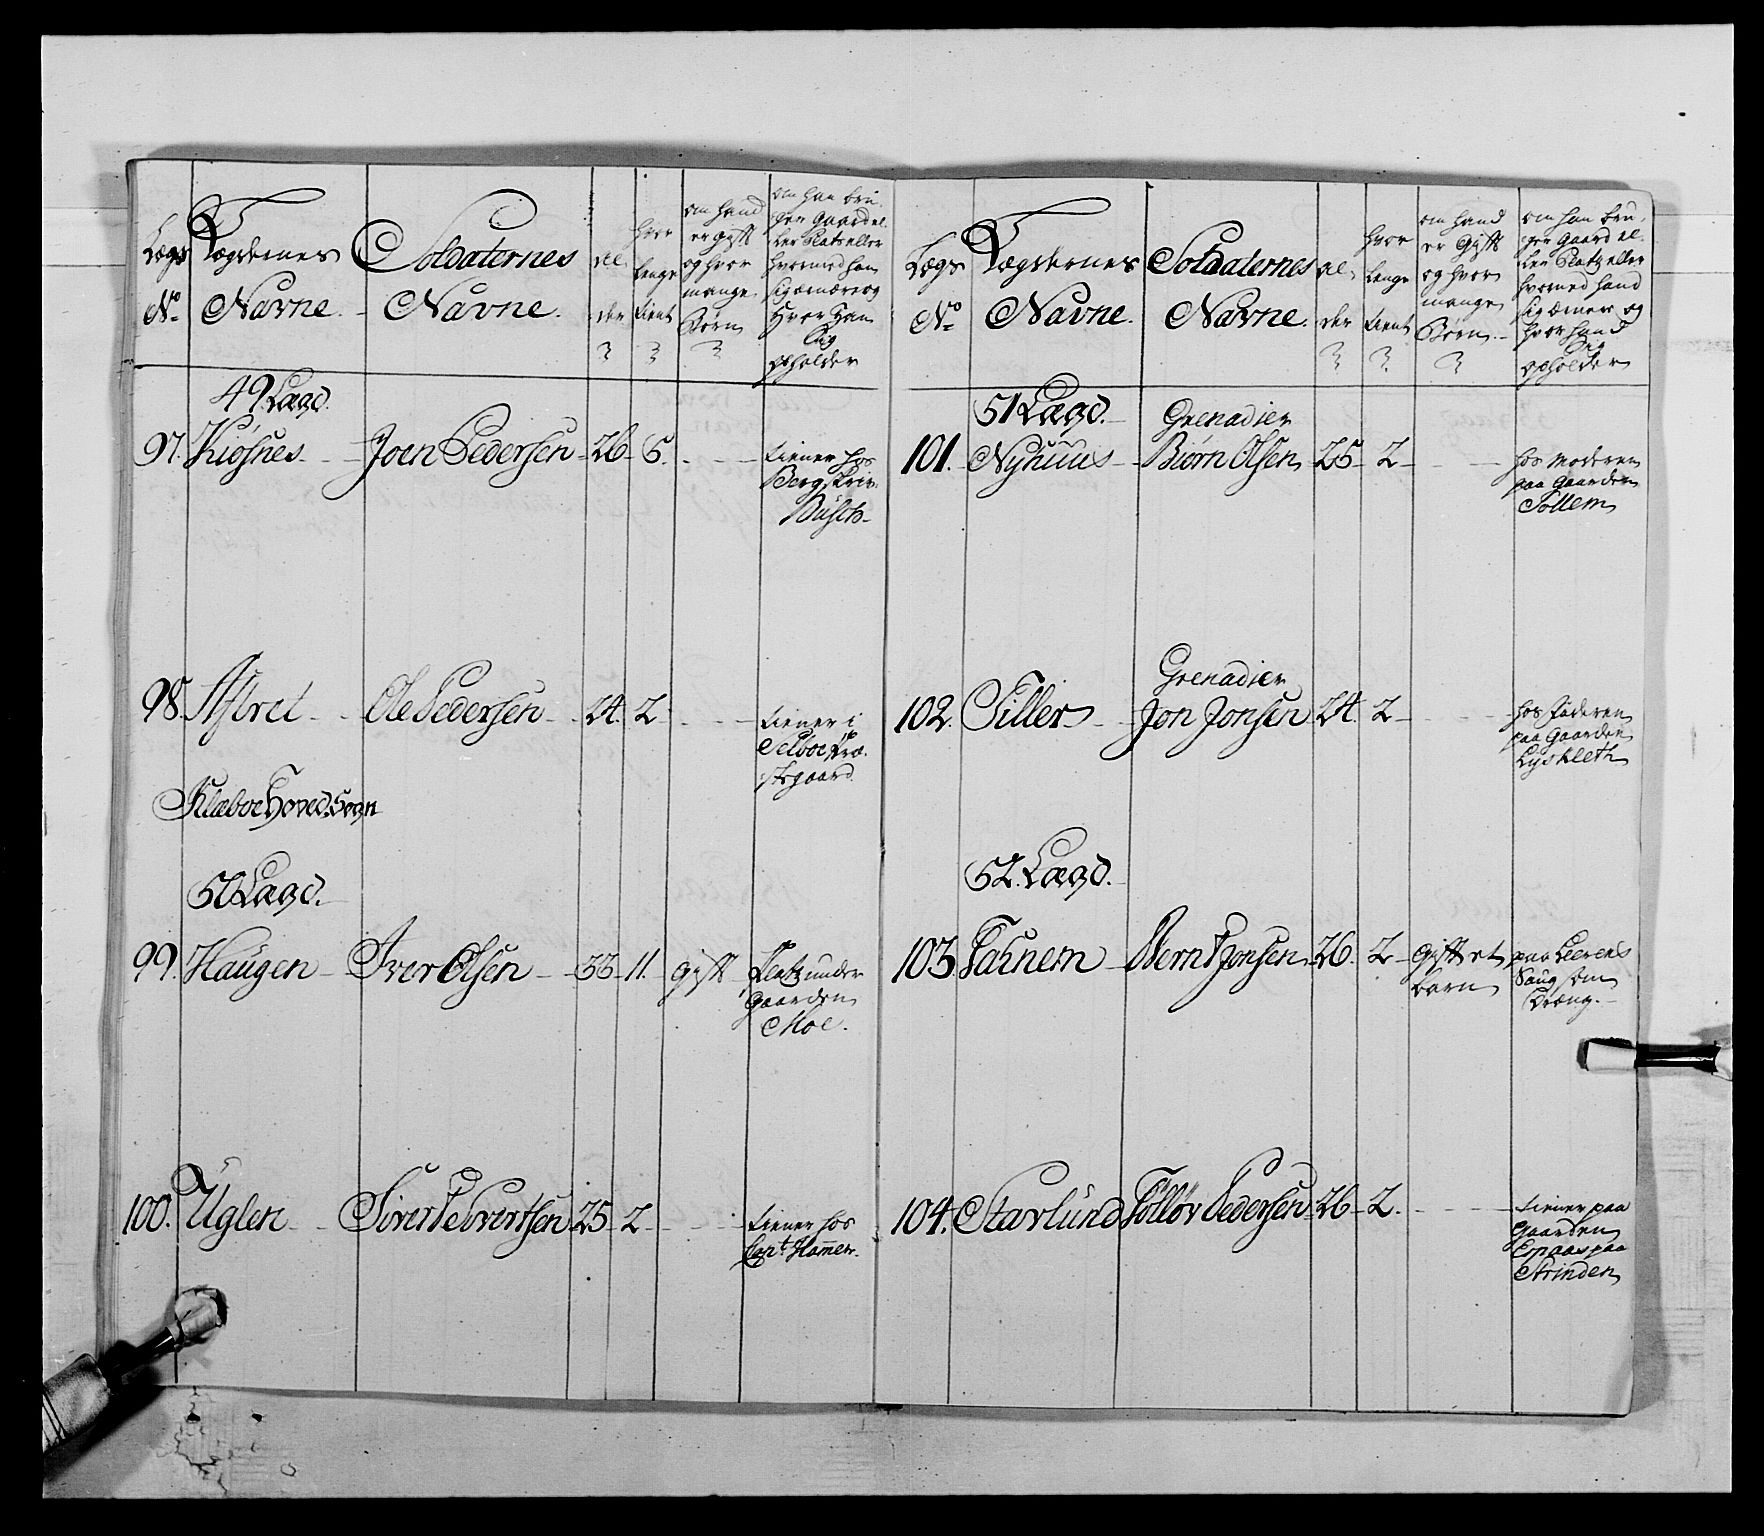 Lægs
No
Lægdernes
Navne.
Soldaternes
Navne.
al
der
?
hvor
lenge
tient
?
om hand
er gift
og hvor
mange
Börn
?
om han bru-
ger Gaard el-
ler Platz eller
hvormed han
sig ernærer og
Hvor Han
Sig
opholder
49 Lægd.
97. Kiösnes Joen Pedersen 26 6. tiener hos
Bergskriv.
Busch
98. Aftret Ole Pedersen 24. 2 tiener i
Selboe Præ-
stegaard.
Klæboe Hoved Sogn
50 Lægd.
99. Haugen Iver Olsen 33 11. gift Platz under
Gaarden
Moe.
100. Uglen Siver Sivertsen 25 2 tiener hos
Capt. Hammer.
Lægs
No
Lægdernes
Navne.
Soldaternes
Navne.
al-
der
?
hvor
lenge
tient
?
om hand
er Gift
og hvor
mange
Börn
?
om han bru-
ger Gaard el-
ler Platz eller
hvormed hand
sig ærner og
hvor hand
Sig
opholder
51 Lægd. Grenadier
101. Nyhuus Biörn Olsen 25 2 hos Moderen
paa Gaarden
Tollem
Grenadier
102. Tiller Jon Jonsen 24 2 hos Faderen
paa Gaarden
Lyskleth
52. Lægd.
103. Tahnem Bernt Jonsen 26. 2 gift et paa Leerens
barn Saug som
Dræng.
104. Starlund Tollöv Pedersen 26 2. tiener paa
Gaarden
Espaas paa
Strinden